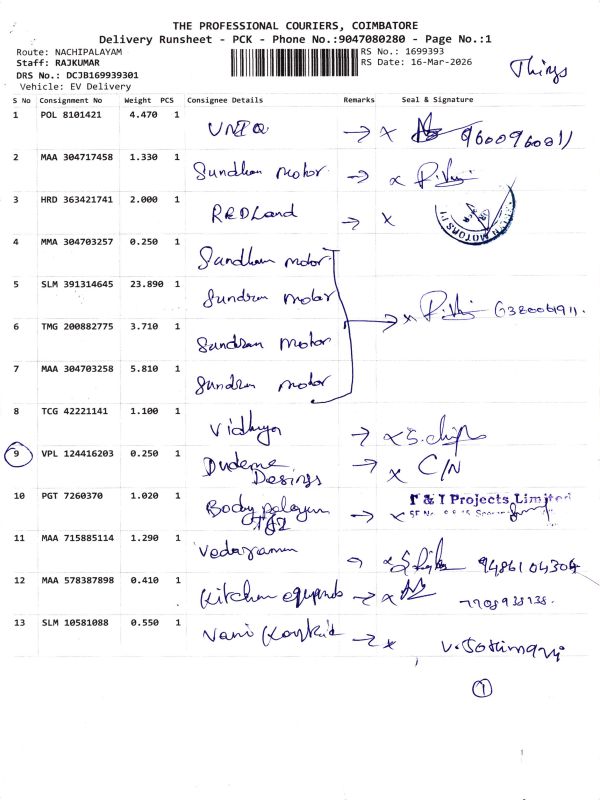 THE PROFESSIONAL COURIERS, COIMBATORE
Delivery Runsheet - PCK - Phone No.:9047080280 - Page No.:1
Route: NACHIPALAYAM
RS No.: 1699393
Staff: RAJKUMAR
RS Date: 16-Mar-2026
Things
DRS No.: DCJB169939301
Vehicle: EV Delivery
S No Consignment No Weight PCS Consignee Details Remarks Seal & Signature
1 POL 8101421 4.470 1 UNIQ → x 9600960011
2 MAA 304717458 1.330 1 Sundhan motor → x
3 HRD 363421741 2.000 1 REDLand → x
MOTORS
4 MMA 304703257 0.250 1 Sundhan motor
5 SLM 391314645 23.890 1 Sundran motor → x
6 TMG 200882775 3.710 1 Sundran motor
7 MAA 304703258 5.810 1 Sundran motor
8 TCG 42221141 1.100 1 Vidhya → x
9 VPL 124416203 0.250 1 → x C/N
10 PGT 7260370 1.020 1 Body → x
Projects Limited
11 MAA 715885114 1.290 1 x 9486104304
12 MAA 578387898 0.410 1 Kitchen → x
13 SLM 10581088 0.550 1 Vani → x
1
1